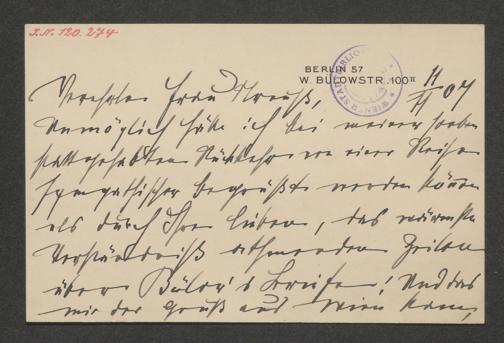 I.N. 120.274
BERLIN 57
W. BÜLOWSTR. 100 II
11/II 07
Verehrte Frau Strauß,
Unmöglich hätte ich bei meiner soeben
stattgehabten Rückkehr von einer Reise
sympathischer begrüßt werden können
als durch Ihre lieben, das wärmste
Verständniß athmenden Zeilen
über Bülow's Briefe! Und das
mir der Gruß aus Wien kam,